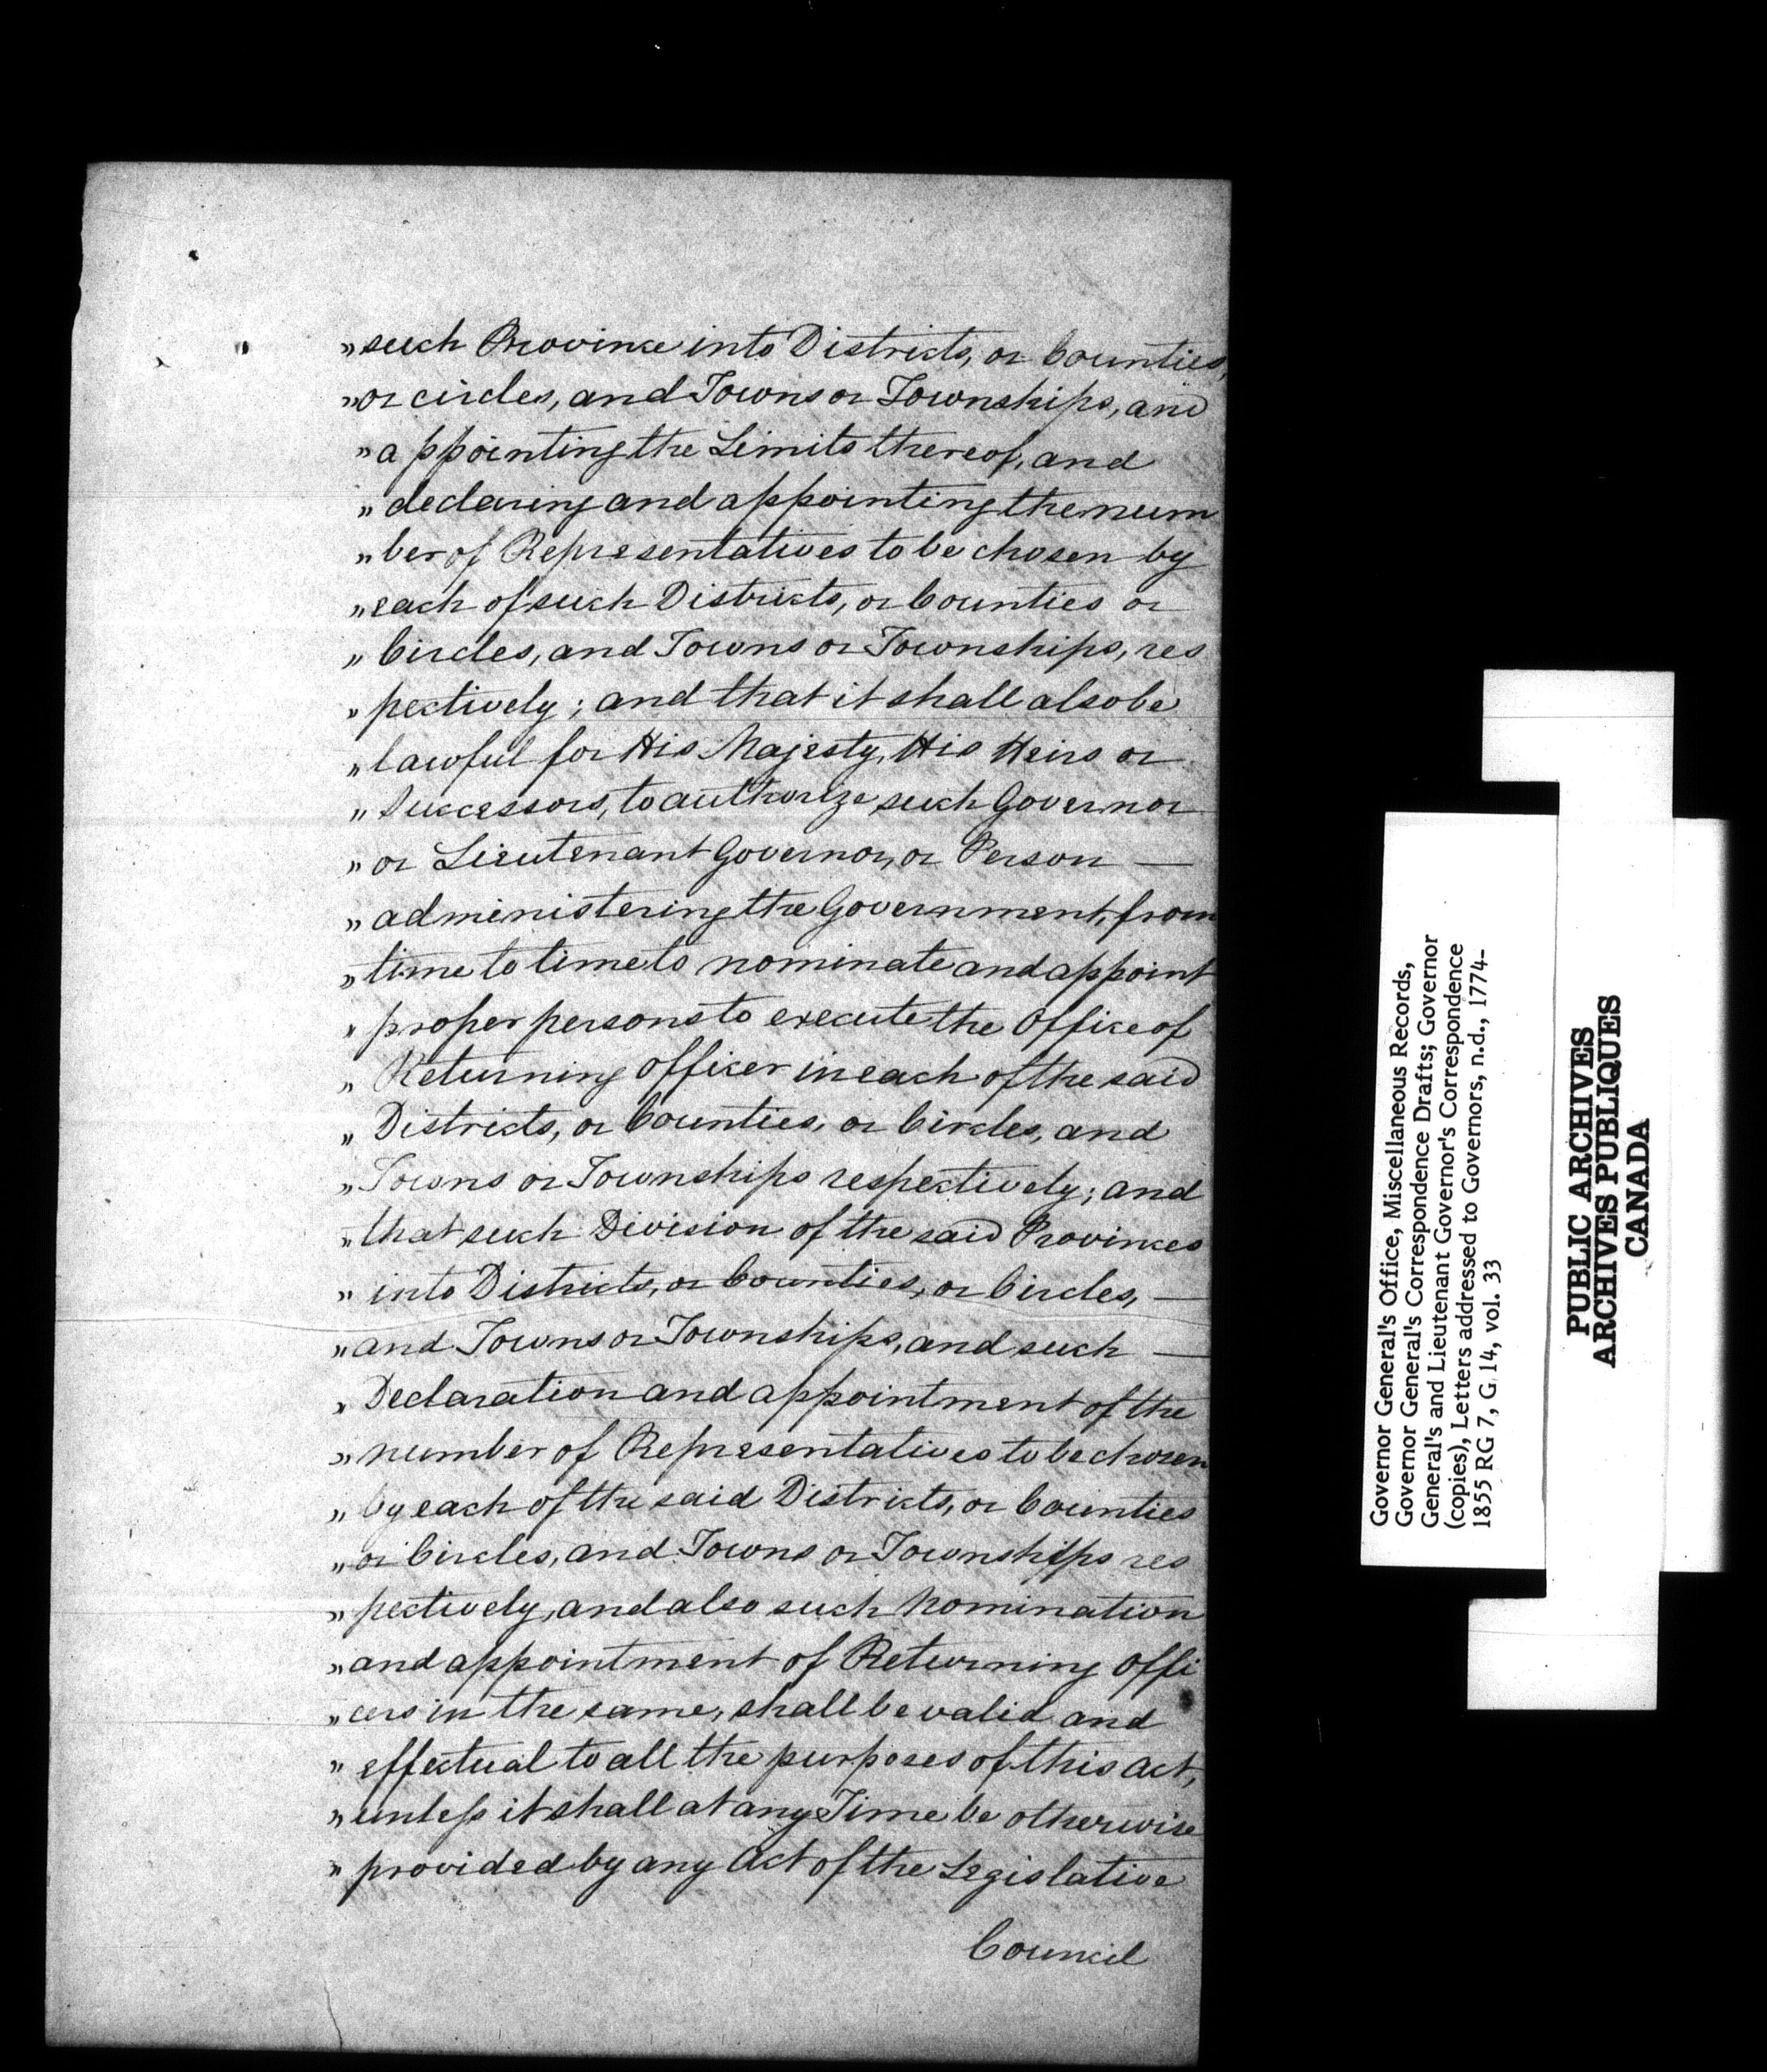 "such Province into Districts, or Counties,
"or circles, and Towns or Townships, and
"appointing the Limits thereof, and
"declaring and appointing the num
"ber of Representatives to be chosen by
"each of such Districts, or Counties or
"Circles, and Towns or Townships, res
"pectively; and that it shall also be
"lawful for His Majesty, His Heirs or
"Successors, to authorize such Governor
"or Lieutenant Governor, or Person —
"administering the Government, from
"time to time to nominate and appoint
"proper persons to execute the Office of
"Returning Officer in each of the said
"Districts, or Counties, or Circles, and
"Towns or Townships respectively; and
"that such Division of the said Provinces
"into Districts, or Counties, or Circles, —
"and Towns or Townships, and such —
"Declaration and appointment of the
"number of Representatives to be chosen
"by each of the said Districts, or Counties
"or Circles, and Towns or Townships res
"pectively, and also such Nomination
"and appointment of Returning Offi
"cers in the same, shall be valid and
"effectual to all the purposes of this Act,
"unless it shall at any Time be otherwise
"provided by any Act of the Legislative
Council
Governor General's Office, Miscellaneous Records,
Governor General's Correspondence Drafts; Governor
General's and Lieutenant Governor's Correspondence
(copies), Letters addressed to Governors, n.d., 1774-
1855 RG 7, G 14, vol. 33
PUBLIC ARCHIVES
ARCHIVES PUBLIQUES
CANADA